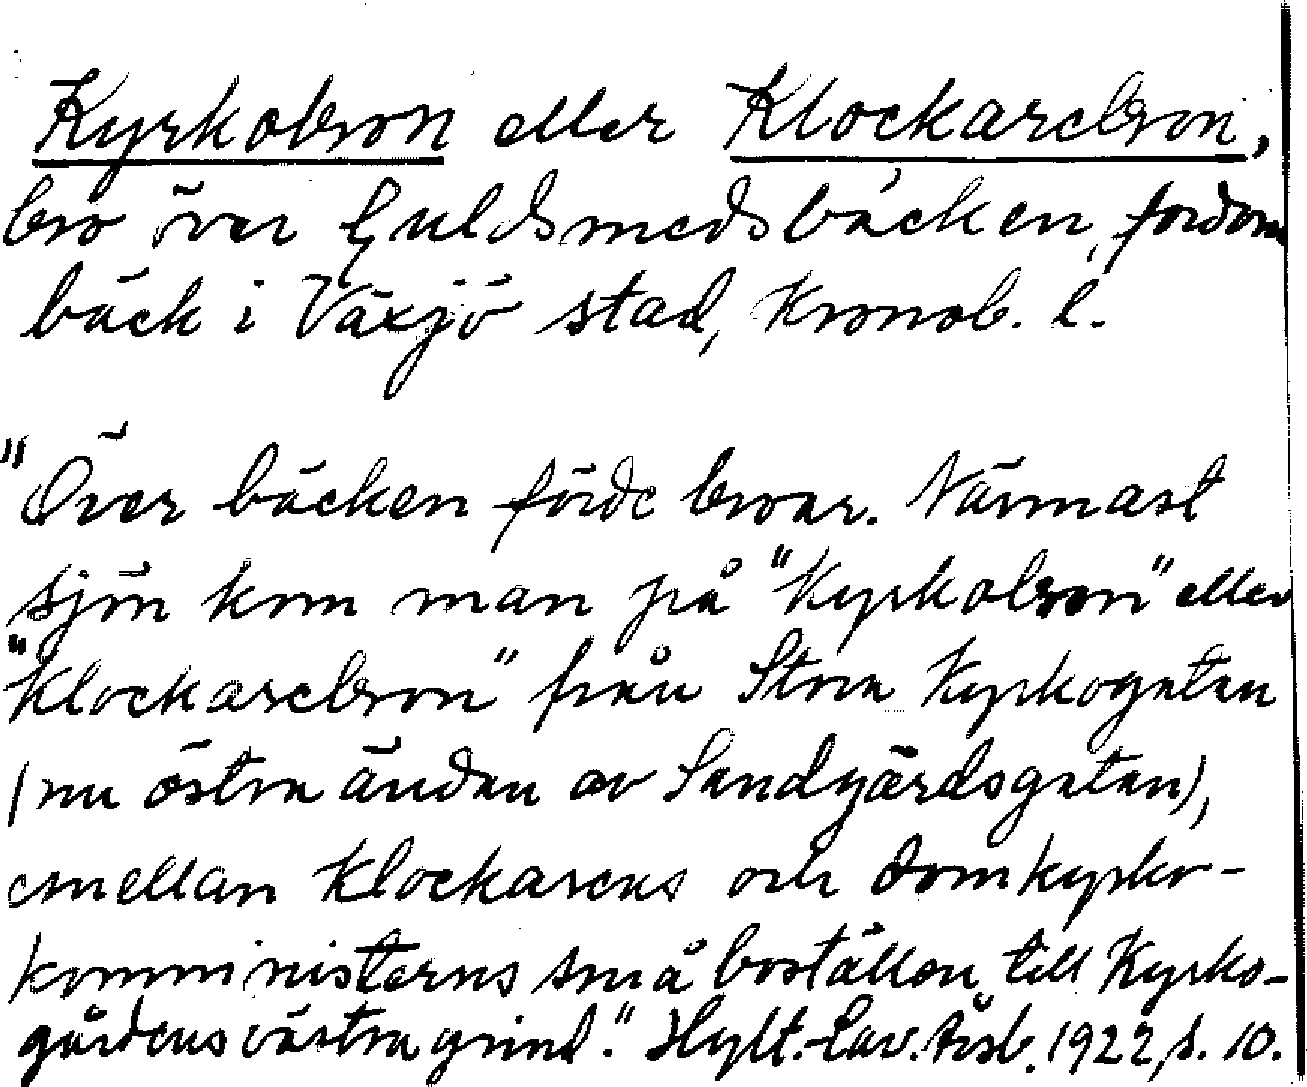 Kyrkobron eller Klockarebron,
bro över Guldsmedsbäcken, fordom
bäck i Växjö stad, Kronob. l.
"Över bäcken förde broar. Närmast
sjön kom man på "Kyrkobron" eller
"Klockarebron" från Stora Kyrkogatan
(nu östra ändan av Sandgärdsgatan),
emellan klockarens och domkyrko-
komministerns små boställen till Kyrko-
gårdens västra grind." Hylt.-Cav. Årsb. 1922, s. 10.